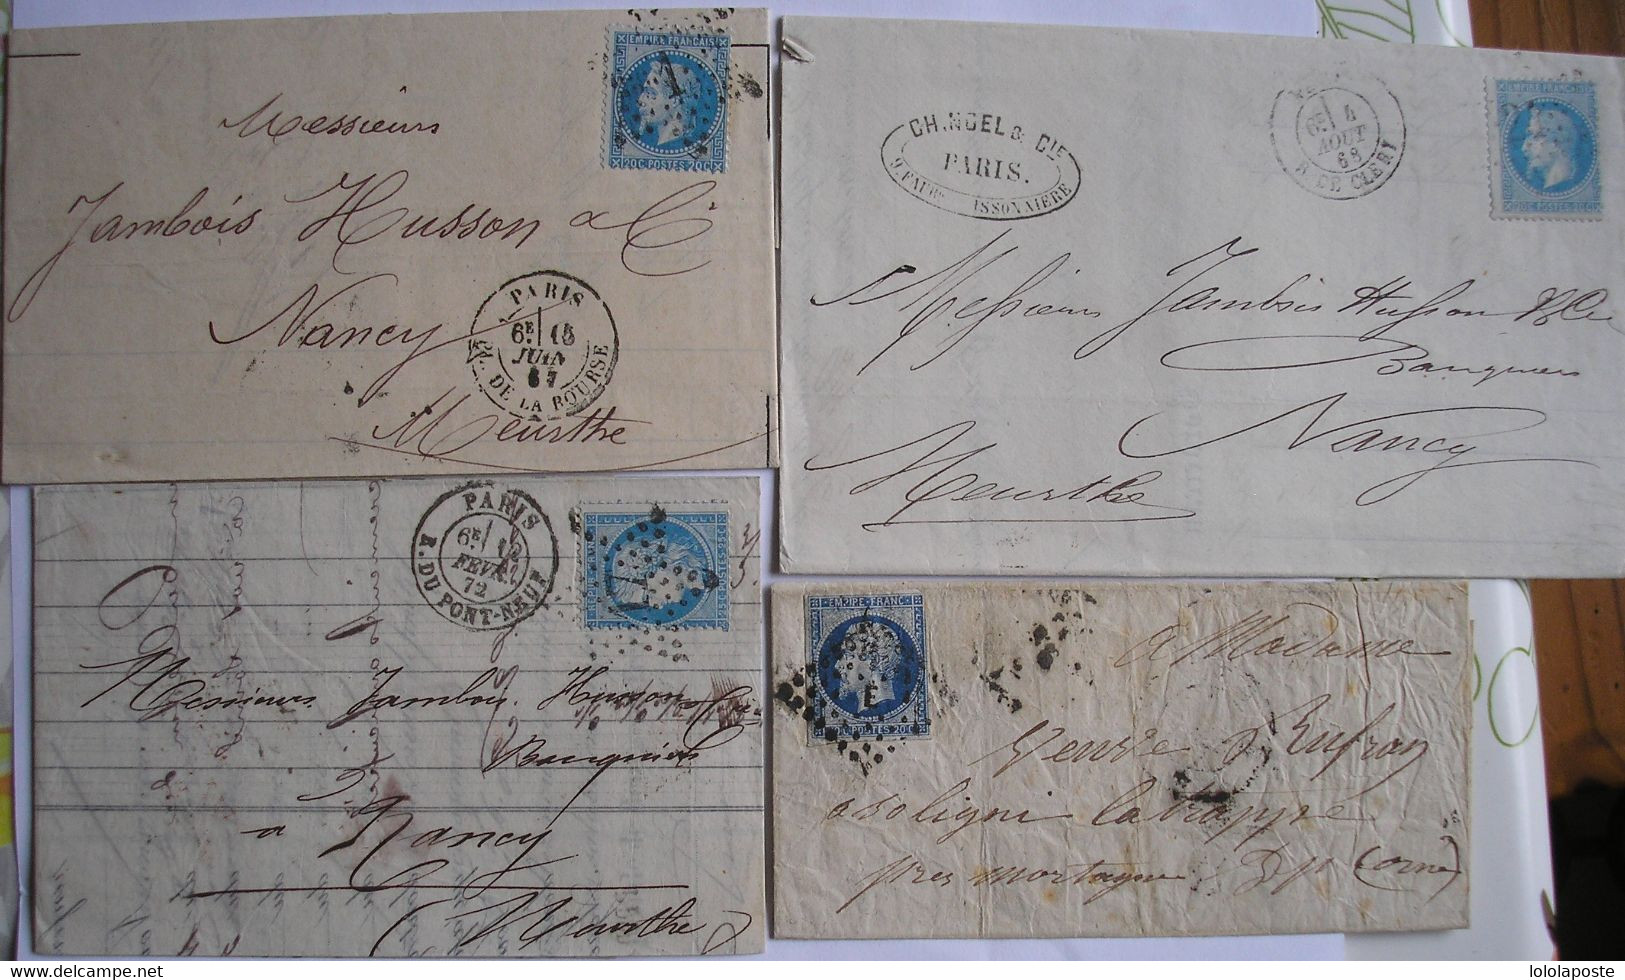 EMPIRE FRANÇAIS
1
20C POSTES 20C
Messieurs
Jambois Husson & Cie
Nancy
Meurthe
PARIS
6E 15
JUIN
67
PL. DE LA BOURSE
CH. NOEL & CIE
PARIS.
9, FAUBG ISSONNIERE
6E 4
AOUT
68
R. DE CLERY
EMPIRE FRANÇAIS
20C POSTES 20C
Messieurs Jambois Husson & Cie
Banquiers
Nancy
Meurthe
PARIS
6E
FEVR.
72
R. DU PONT-NEUF
Messieurs Jambois Husson & Cie
Banquiers
a
Nancy
(Meurthe)
EMPIRE FRANC.
E
20C POSTES 20C
a Madame
Veuve Rufray
a soligni latrappe
pres mortagne Dpt (orne)
lololaposte